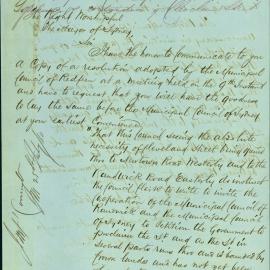 The Right Worshipful
The Mayor of Sydney
Sir
I have the honor to communicate to you
a Copy of a resolution adopted by the Municipal
Council of Redfern at a meeting held on the 9th Instant
and have to request that you will have the goodness
to lay the same before the Municipal Council of Sydney
at your earliest Convenience
"That this Council seeing the absolute
necessity of Cleveland Street being opened
thro to Newtown Road Westerly and to the
Randwick Road Easterly do instruct
the Council Clerk to write to invite the
Cooperation of the Municipal Council of
Randwick and the Municipal Council
of Sydney to Petition the Government to
proclaim the St and as the St in
several parts runs thro and is bounded by
Crown lands and has not yet been